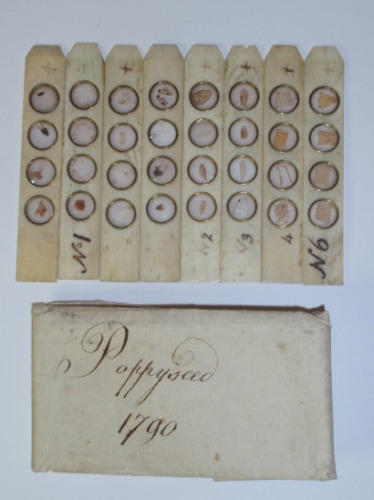 + + + + + + +
No1 No2 No3 4 No6
Poppyseed
1790